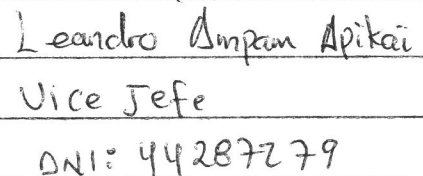 Leandro Ampam Apikai
Vice Jefe
DNI: 44287279